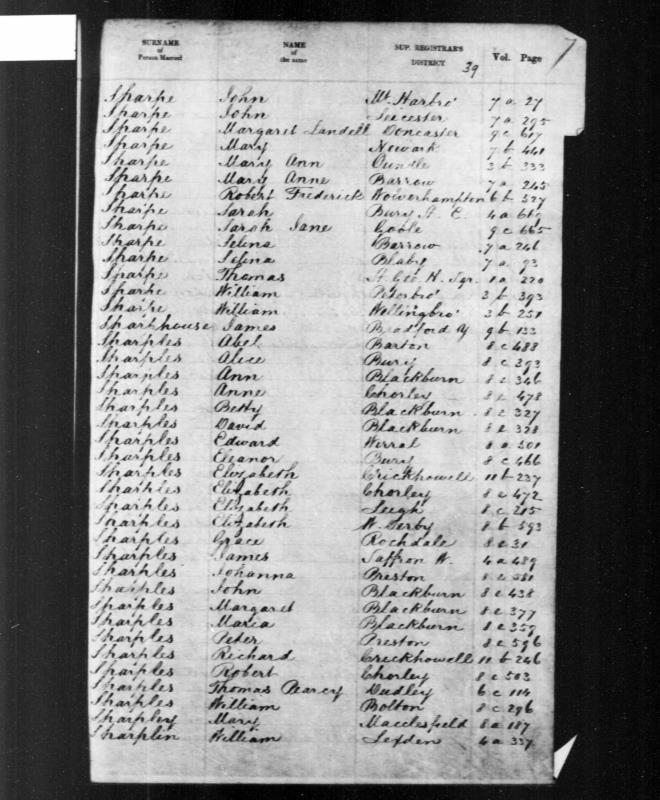 SURNAME of Person Married NAME of the same SUP. REGISTRAR'S DISTRICT Vol. Page 7
39
Sharpe John Mt. Harbro' 7 a 27
Sharpe John Leicester 7 a 295
Sharpe Margaret Landell Doncaster 9 c 617
Sharpe Mary Newark 7 b 441
Sharpe Mary Ann Oundle 3 b 333
Sharpe Mary Anne Barrow 7 a 245
Sharpe Robert Frederick Wolverhampton 6 b 527
Sharpe Sarah Bury St. E. 4 a 669
Sharpe Sarah Jane Goole 9 c 665
Sharpe Selina Barrow 7 a 246
Sharpe Selina Blaby 7 a 93
Sharpe Thomas St. Geo. H. Sqr. 1 a 220
Sharpe William P'terbro' 3 b 393
Sharpe William Wellingbro' 3 b 251
Sharphouse James Bradford Y. 9 b 133
Sharples Abel Barton 8 c 488
Sharples Alice Bury 8 c 393
Sharples Ann Blackburn 8 e 346
Sharples Anne Chorley 8 e 478
Sharples Betty Blackburn 8 e 327
Sharples David Blackburn 8 e 328
Sharples Edward Wirral 8 a 501
Sharples Eleanor Bury 8 c 466
Sharples Elizabeth Crickhowell 11 b 237
Sharples Elizabeth Chorley 8 e 472
Sharples Elizabeth Leigh 8 c 215
Sharples Elizabeth W. Derby 8 b 593
Sharples Grace Rochdale 8 e 31
Sharples James Saffron W. 4 a 489
Sharples Johanna Preston 8 e 581
Sharples John Blackburn 8 e 438
Sharples Margaret Blackburn 8 e 377
Sharples Maria Blackburn 8 e 359
Sharples Peter Preston 8 e 596
Sharples Richard Crickhowell 11 b 246
Sharples Robert Chorley 8 e 503
Sharples Thomas Pearcy Dudley 6 c 114
Sharples William Bolton 8 c 296
Sharpley Mary Macclesfield 8 a 187
Sharplin William Lexden 4 a 337